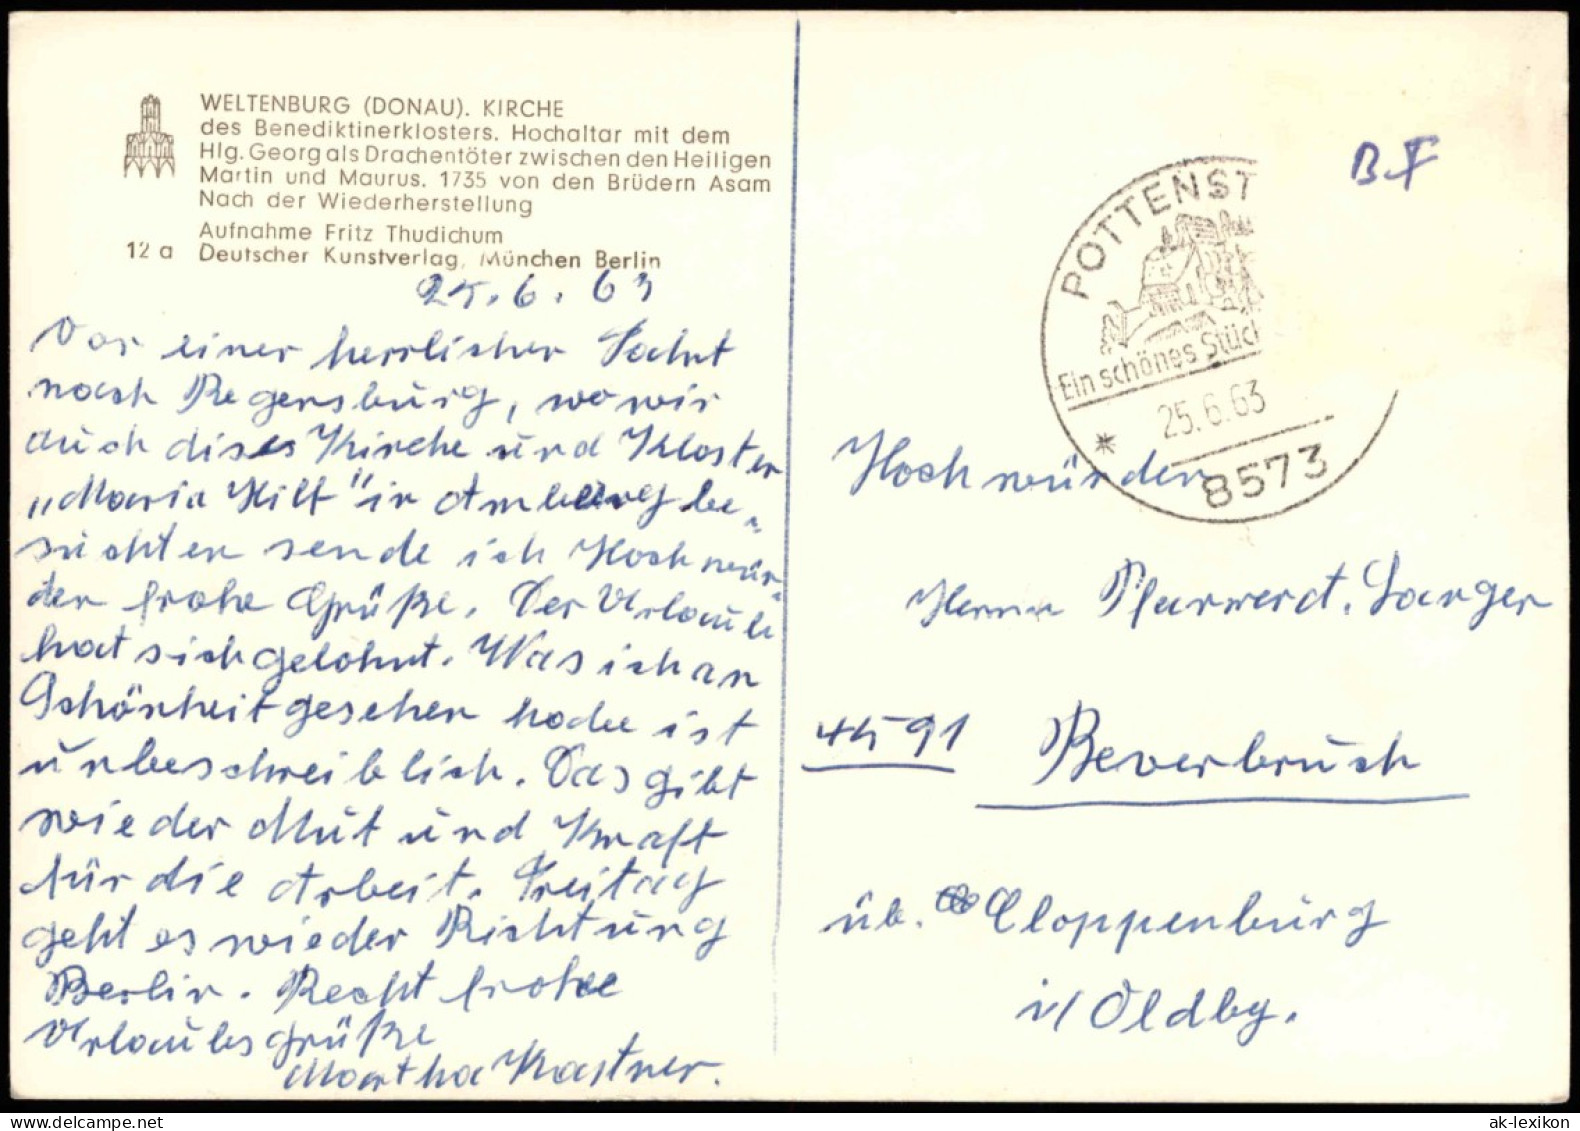 WELTENBURG (DONAU). KIRCHE
des Benediktinerklosters. Hochaltar mit dem
Hlg. Georg als Drachentöter zwischen den Heiligen
Martin und Maurus. 1735 von den Brüdern Asam
Nach der Wiederherstellung
Aufnahme Fritz Thudichum
12 a Deutscher Kunstverlag, München Berlin
25.6.63
Von einer herrlichen Fahrt
nach Regensburg, wo wir
auch dises Kirche und Kloster
„Maria Hilf" in Amberg be-
suchten sende ich Hochwür-
den frohe Grüße. Der Urlaub
hat sich gelohnt. Was ich an
Schönheit gesehen habe ist
unbeschreiblich. Das gibt
wieder Mut und Kraft
für die Arbeit. Freitag
geht es wieder Richtung
Berlin. Recht frohe
Urlaubsgrüße
Martha Kastner.
B.F
POTTENST
Ein schönes Stück
25.6.63
8573
Hochwürden
Herrn Pfarrer
4591 Beverbruch
üb. Cloppenburg
i/ Oldbg.